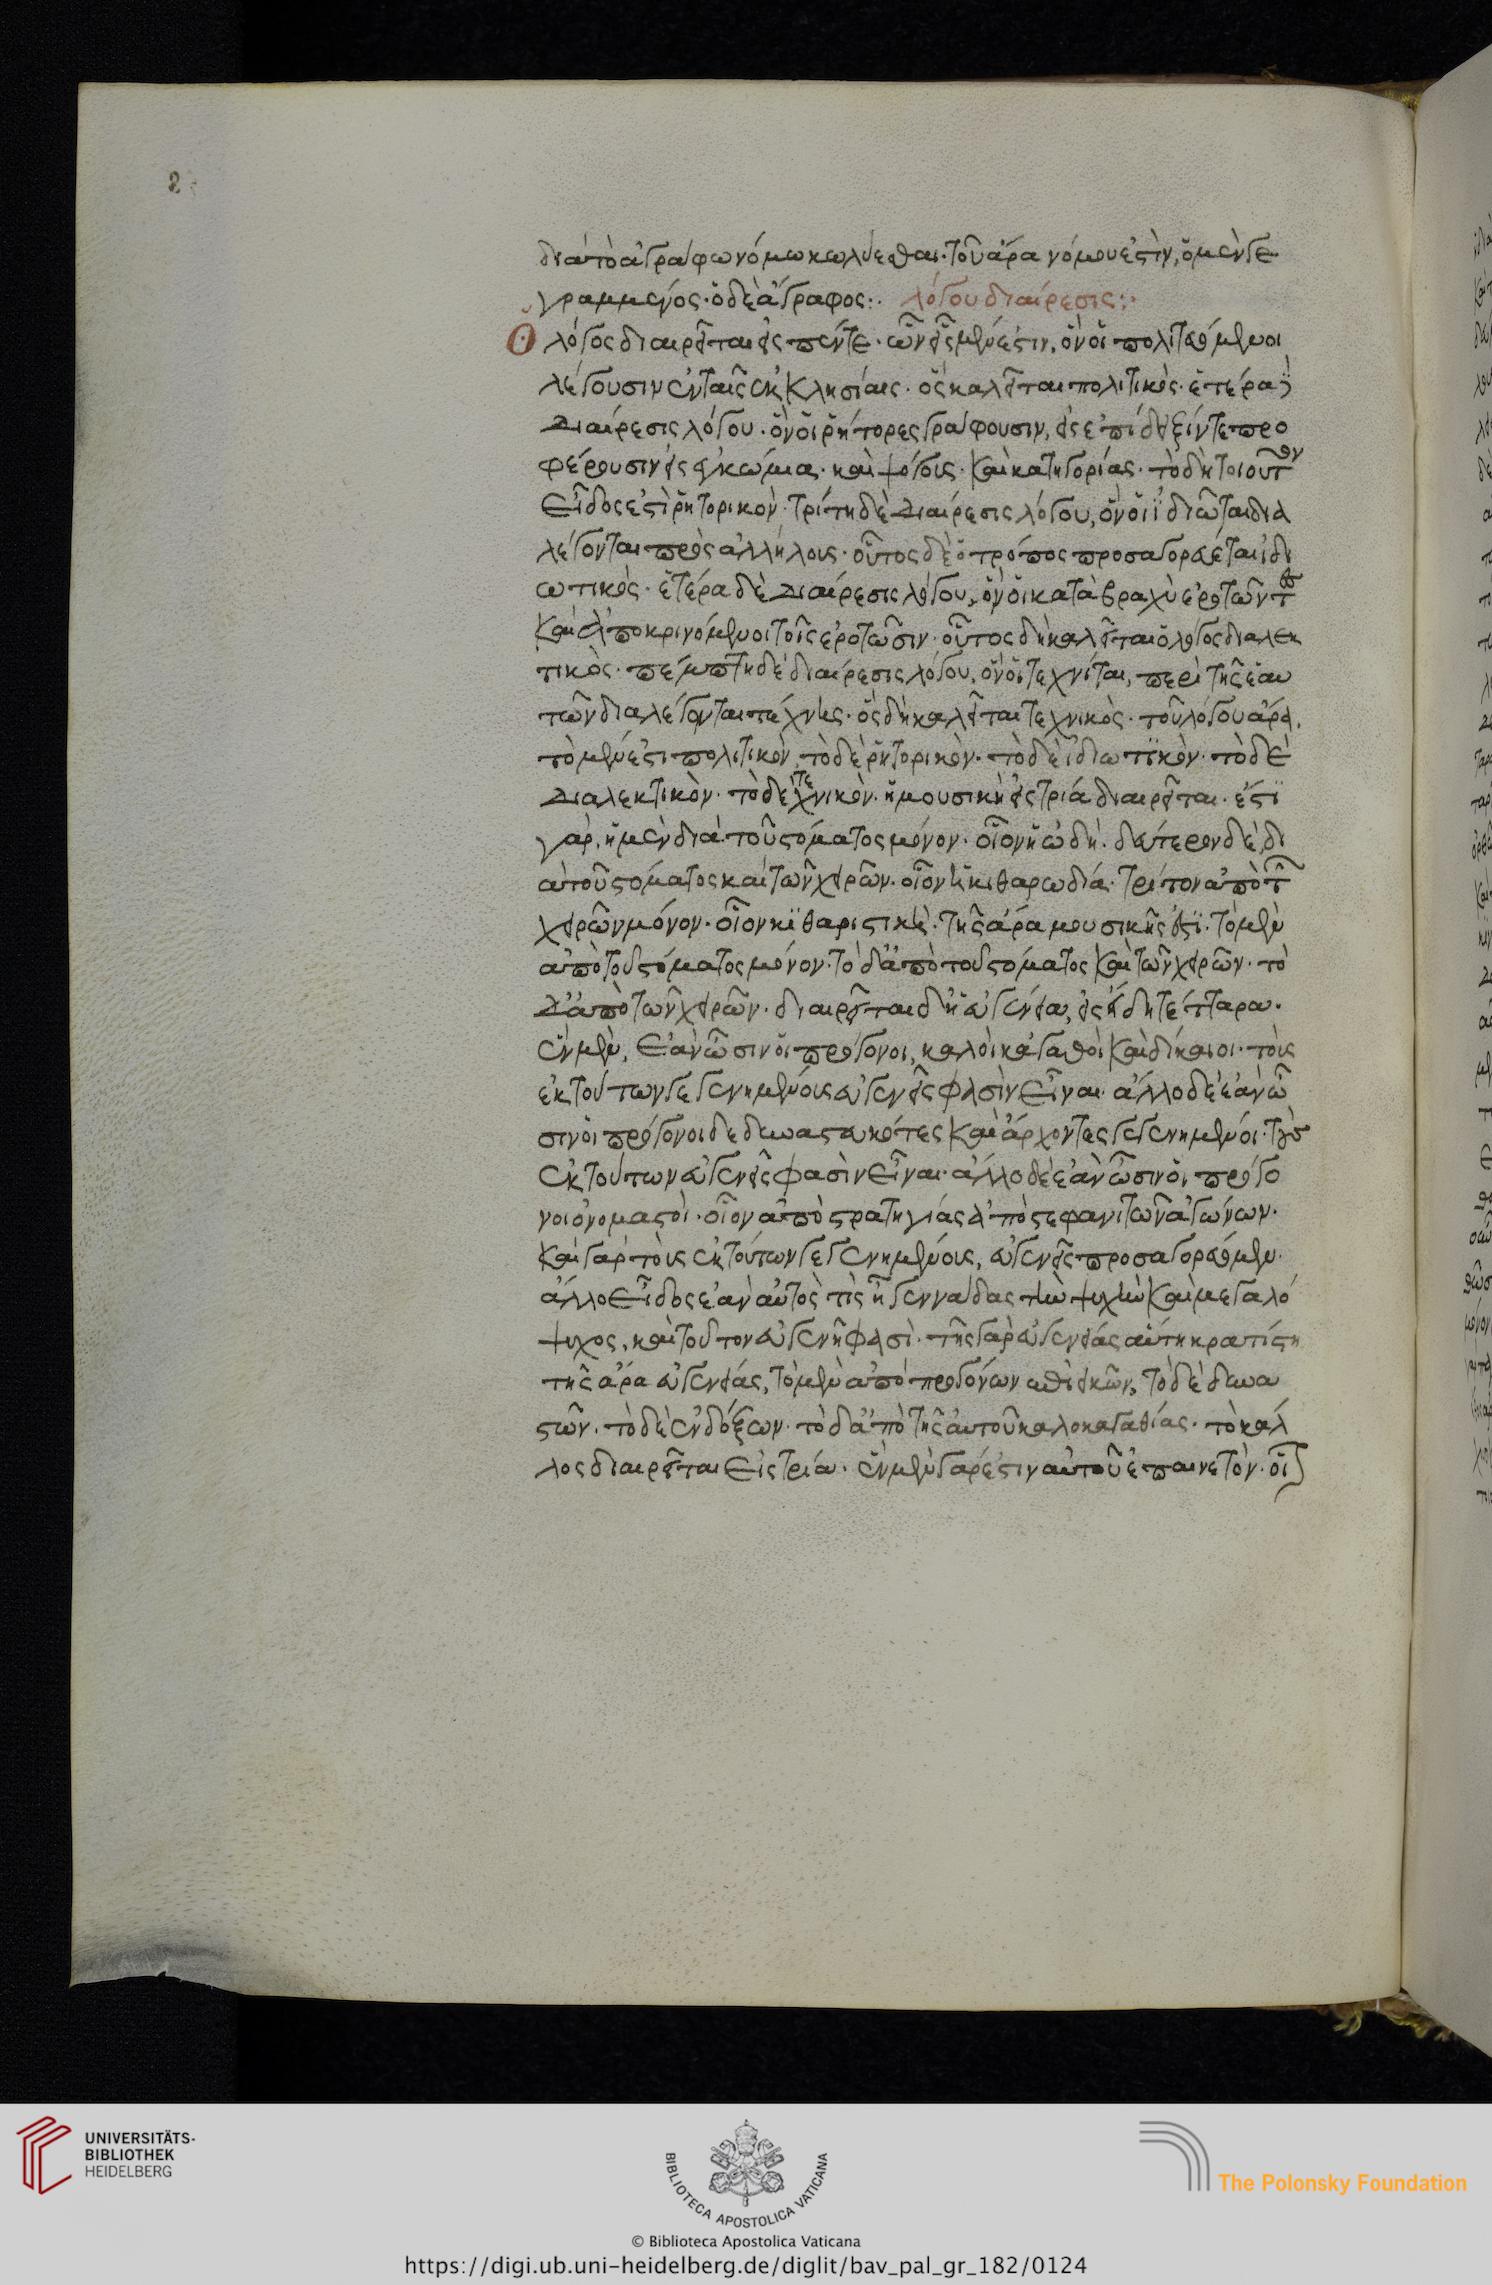 διατὸ ἀγράφω νόμω κωλύεσθαι· τοῦ ἄρα νόμου ἐστὶν, ὁ μὲν γε
γραμμένος· ὁ δὲ ἄγραφος:· λόγου διαίρεσις:·
Ὁ λόγος διαιρεῖται εἰς πέντε· ὧν εἷς μὲν ἐστιν, ὃν οἱ πολιτευόμενοι
λέγουσιν ἐν ταῖς ἐκκλησίαις· ὃς καλεῖται πολιτικὸς· ἑτέρα
διαίρεσις λόγου· ὃν οἱ ῥήτορες γράφουσιν, εἰς ἐπίδειξίν τε προ
φέρουσιν εἰς ἐγκώμια· καὶ ψόγους· καὶ κατηγορίας· τὸ δὴ τοιοῦτον
εἶδος ἐστὶ ῥητορικὸν· τρίτη δὲ διαίρεσις λόγου, ὃν οἱ ἰδιῶται δια
λέγονται πρὸς ἀλλήλους· οὗτος δὲ ὁ τρόπος προσαγορεύεται ἰδι
ωτικὸς· ἑτέρα δὲ διαίρεσις λόγου, ὃν οἱ κατὰ βραχὺ ἐρωτῶντες
καὶ ἀποκρινόμενοι τοῖς ἐροτῶσιν· οὗτος δὴ καλεῖται ὁ λόγος διαλεκ
τικὸς· πέμπτη δὲ διαίρεσις λόγου, ὃν οἱ τεχνίται, περὶ τῆς ἑαυ
τῶν διαλέγονται τέχνης· ὃς δὴ καλεῖται τεχνικὸς· τοῦ λόγου ἄρα,
τὸ μὲν ἐστι πολιτικὸν, τὸ δὲ ῥητορικὸν· τὸ δὲ ἰδιωτϊκὸν· τὸ δὲ
διαλεκτικὸν· τὸ δὲ τεχνικὸν· ἡ μουσικὴ εἰς τρία διαιρεῖται· ἔστϊ
γὰρ, ἡ μὲν διὰ τοῦ στόματος μόνον· οἷον ἡ ὠδὴ· δεύτερον δὲ, δι
ὰ τοῦ στόματος καὶ τῶν χειρῶν· οἷον ἡ κιθαρωδία· τρίτον ἀπὸ τῶν
χειρῶν μόνον· οἷον κϊθαριστικὴ· τῆς ἄρα μουσικῆς ἐστϊ· τὸ μὲν
ἀπὸ τοῦ στόματος μόνον· τὸ δ' ἀπὸ τοῦ στόματος καὶ τῶν χειρῶν· τὸ
δ' ἀπὸ τῶν χειρῶν· διαιρεῖται δὴ εὐγένεια, εἰς εἴδη τέτταρα·
ἓν μὲν, ἐὰν ὦσιν οἱ πρόγονοι, καλοὶ κἀγαθοὶ καὶ δίκαιοι· τοὺς
ἐκ τούτων γεγενημένους εὐγενεῖς φασὶν εἶναι· ἄλλο δὲ ἐὰν ὦ
σιν οἱ πρόγονοι δεδυναστευκότες καὶ ἄρχοντες γεγενημένοι· τοὺς
ἐκ τούτων εὐγενεῖς φασὶν εἶναι· ἄλλο δὲ ἐὰν ὦσιν οἱ πρόγο
νοι ὀνομαστοὶ· οἷον ἀπὸ στρατηγίας ἀπὸ στεφανιτῶν ἀγώνων·
καὶ γὰρ τοὺς ἐκ τούτων γεγενημένους, εὐγενεῖς προσαγορεύομεν·
ἄλλο εἶδος ἐὰν αὐτὸς τὶς ἦ γεννάδας τὴν ψυχὴν καὶ μεγαλό
ψυχος, καὶ τοῦτον εὐγενῆ φασὶ· τῆς γὰρ εὐγενείας αὕτη κρατίστη
τῆς ἄρα εὐγενείας, τὸ μὲν ἀπὸ προγόνων ἐπιεικῶν, τὸ δὲ δυνα
στῶν· τὸ δὲ ἐνδόξων· τὸ δ' ἀπὸ τῆς αὐτοῦ καλοκαγαθίας· τὸ κάλ
λος διαιρεῖται εἰς τρία· ἓν μὲν γὰρ ἐστιν αὐτοῦ ἐπαινετὸν· οἷ
UNIVERSITÄTS-
BIBLIOTHEK
HEIDELBERG
BIBLIOTECA APOSTOLICA VATICANA
The Polonsky Foundation
© Biblioteca Apostolica Vaticana
https://digi.ub.uni-heidelberg.de/diglit/bav_pal_gr_182/0124